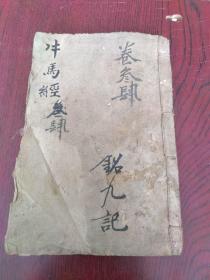 卷叁肆
銘九記
牛馬經叁肆